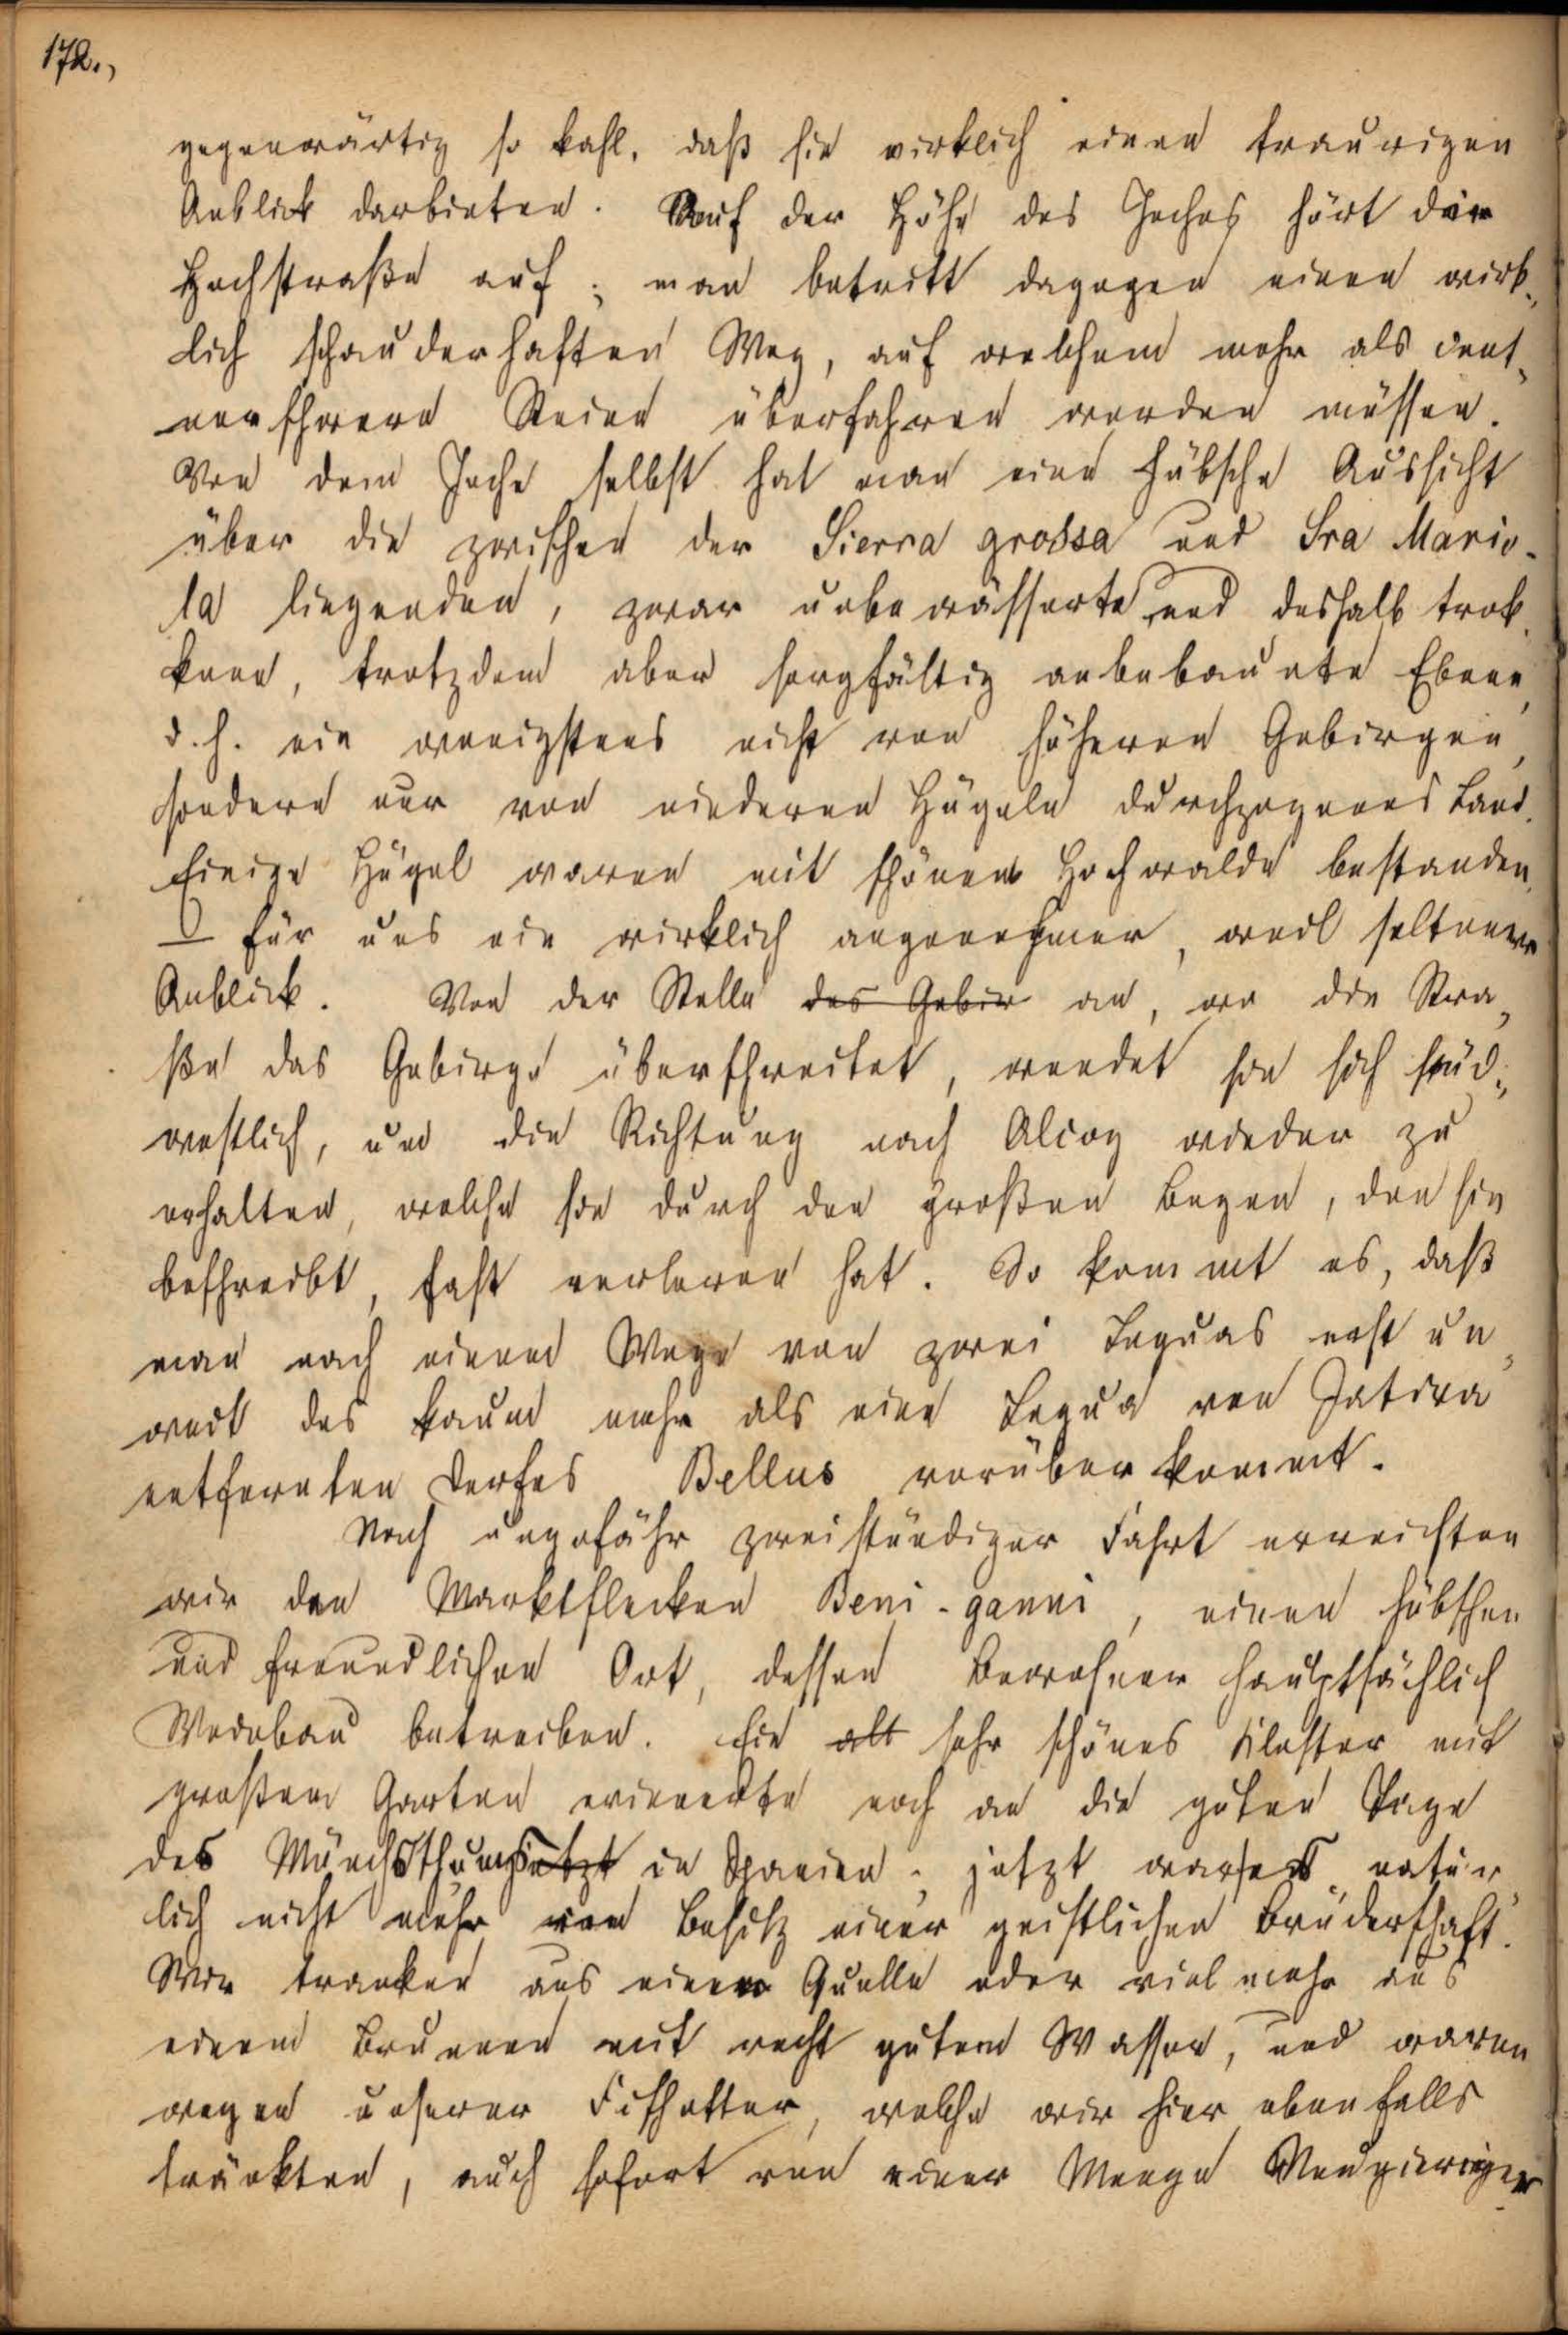 172.,
gegenwärtig so kahl, daß sie wirklich einen traurigen
Anblick darbieten. Auf der Höhe des Joches hört die
Hochstraße auf; man betritt dagegen einen wirk-
lich schauderhaften Weg, auf welchem mehr als cent-
nerschwere Steine überfahren werden müssen.
Von dem Joche selbst hat man eine hübsche Aussicht
über die zwischen der Sierra grossa und Sra Mario-
la liegenden, zwar unbewässerte und deshalb trok-
kene, trotzdem aber sorgfältig angebaute Ebene,
d. h. ein wenigstens nicht von höheren Gebirgen,
sondern nur von niederen Hügeln durchzogenes Land.
Einige Hügel waren mit schönem Hochwalde bestanden,
– für uns ein wirklich angenehmer, weil seltener
Anblick. Von der Stelle des Gebir an, wo die Stra-
ße das Gebirge überschreitet, wendet sie sich süd-
westlich, um die Richtung nach Alcoy wieder zu
erhalten, welche sie durch den großen Bogen, den sie
beschreibt, fast verloren hat. So kommt es, daß
man nach einem Wege von zwei Leguas erst un-
weit des kaum mehr als eine Legua von Jativa
entfernten Dorfes Bellus vorüber kommt.
Nach ungefähr zweistündiger Fahrt erreichten
wir den Marktflecken Beni-ganni, einen hübschen
und freundlichen Ort, dessen Bewohner hauptsächlich
Weinbau betreiben. Ein alt sehr schönes Kloster mit
großem Garten erinnerte noch an die guten Tage
des Mönchsthums jetzt in Spanien; jetzt war es natür-
lich nicht mehr von Besitz einer geistlichen Brüderschaft.
Wir tranken aus einer Quelle oder vielmehr aus
einem Brunnen mit recht gutem Wasser, und waren
wegen unserer Fischotter, welche wir hier ebenfalls
tränkten, auch sofort von einer Menge Neugieriger